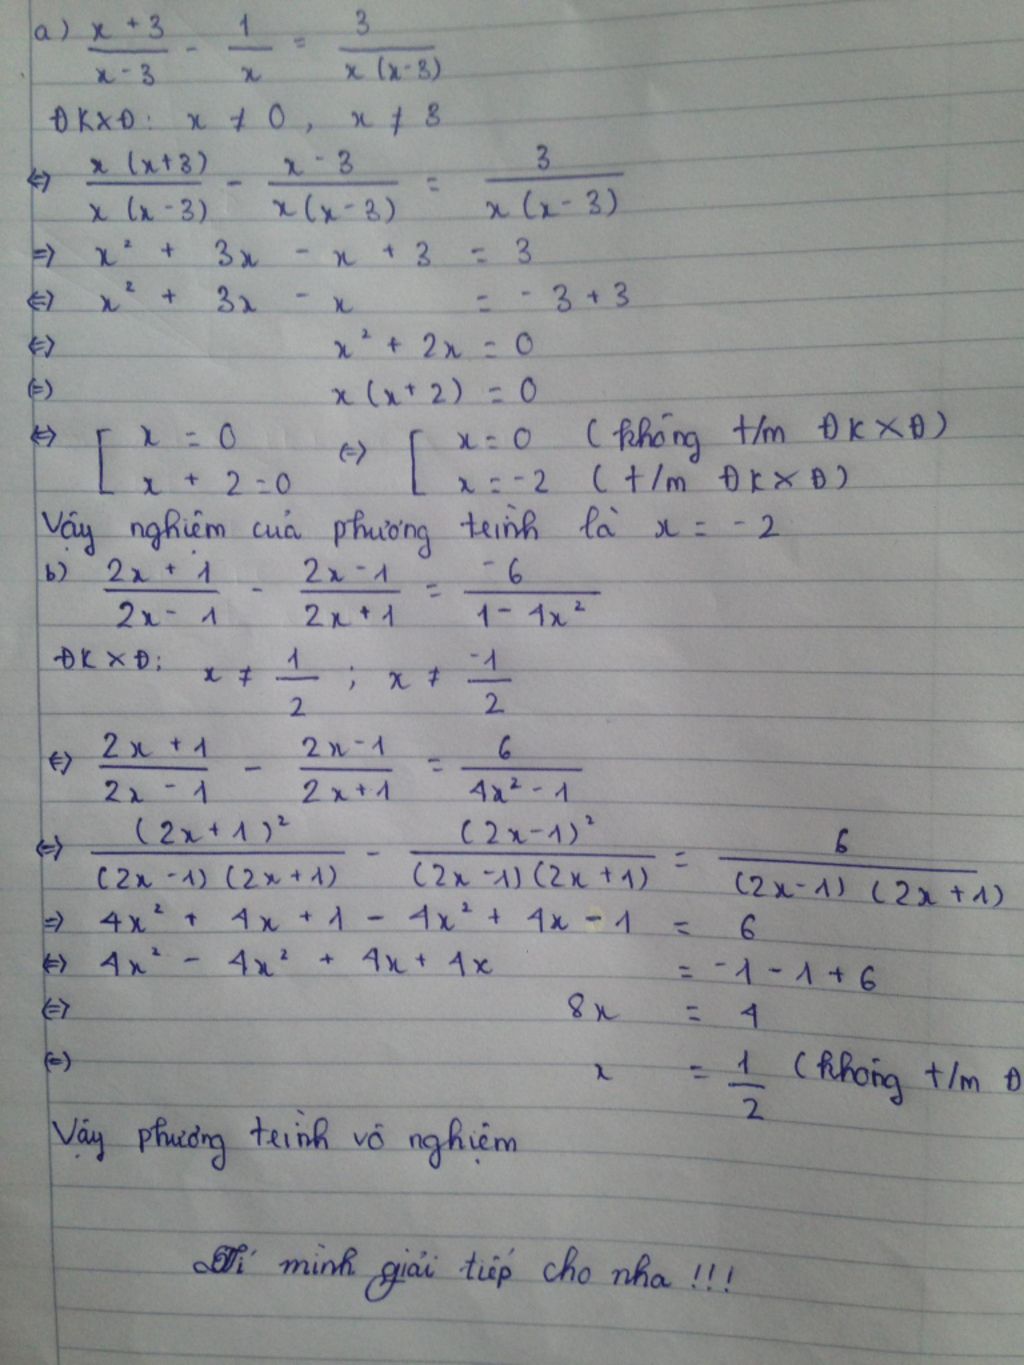 a) x + 3 / x - 3 - 1 / x = 3 / x (x - 3)
ĐKXĐ: x ≠ 0, x ≠ 3
<=> x (x+3) / x (x - 3) - x - 3 / x (x - 3) = 3 / x (x - 3)
=> x² + 3x - x + 3 = 3
<=> x² + 3x - x = - 3 + 3
<=> x² + 2x = 0
<=> x (x + 2) = 0
<=> [ x = 0 <=> [ x = 0 (không t/m ĐKXĐ)
x + 2 = 0 x = -2 (t/m ĐKXĐ)
Vậy nghiệm của phương trình là x = -2
b) 2x + 1 / 2x - 1 - 2x - 1 / 2x + 1 = -6 / 1 - 4x²
ĐKXĐ: x ≠ 1 / 2 ; x ≠ -1 / 2
<=> 2x + 1 / 2x - 1 - 2x - 1 / 2x + 1 = 6 / 4x² - 1
<=> (2x + 1)² / (2x - 1) (2x + 1) - (2x - 1)² / (2x - 1) (2x + 1) = 6 / (2x - 1) (2x + 1)
=> 4x² + 4x + 1 - 4x² + 4x - 1 = 6
<=> 4x² - 4x² + 4x + 4x = -1 - 1 + 6
<=> 8x = 4
<=> x = 1 / 2 (không t/m Đ
Vậy phương trình vô nghiệm
Tí mình giải tiếp cho nha !!!